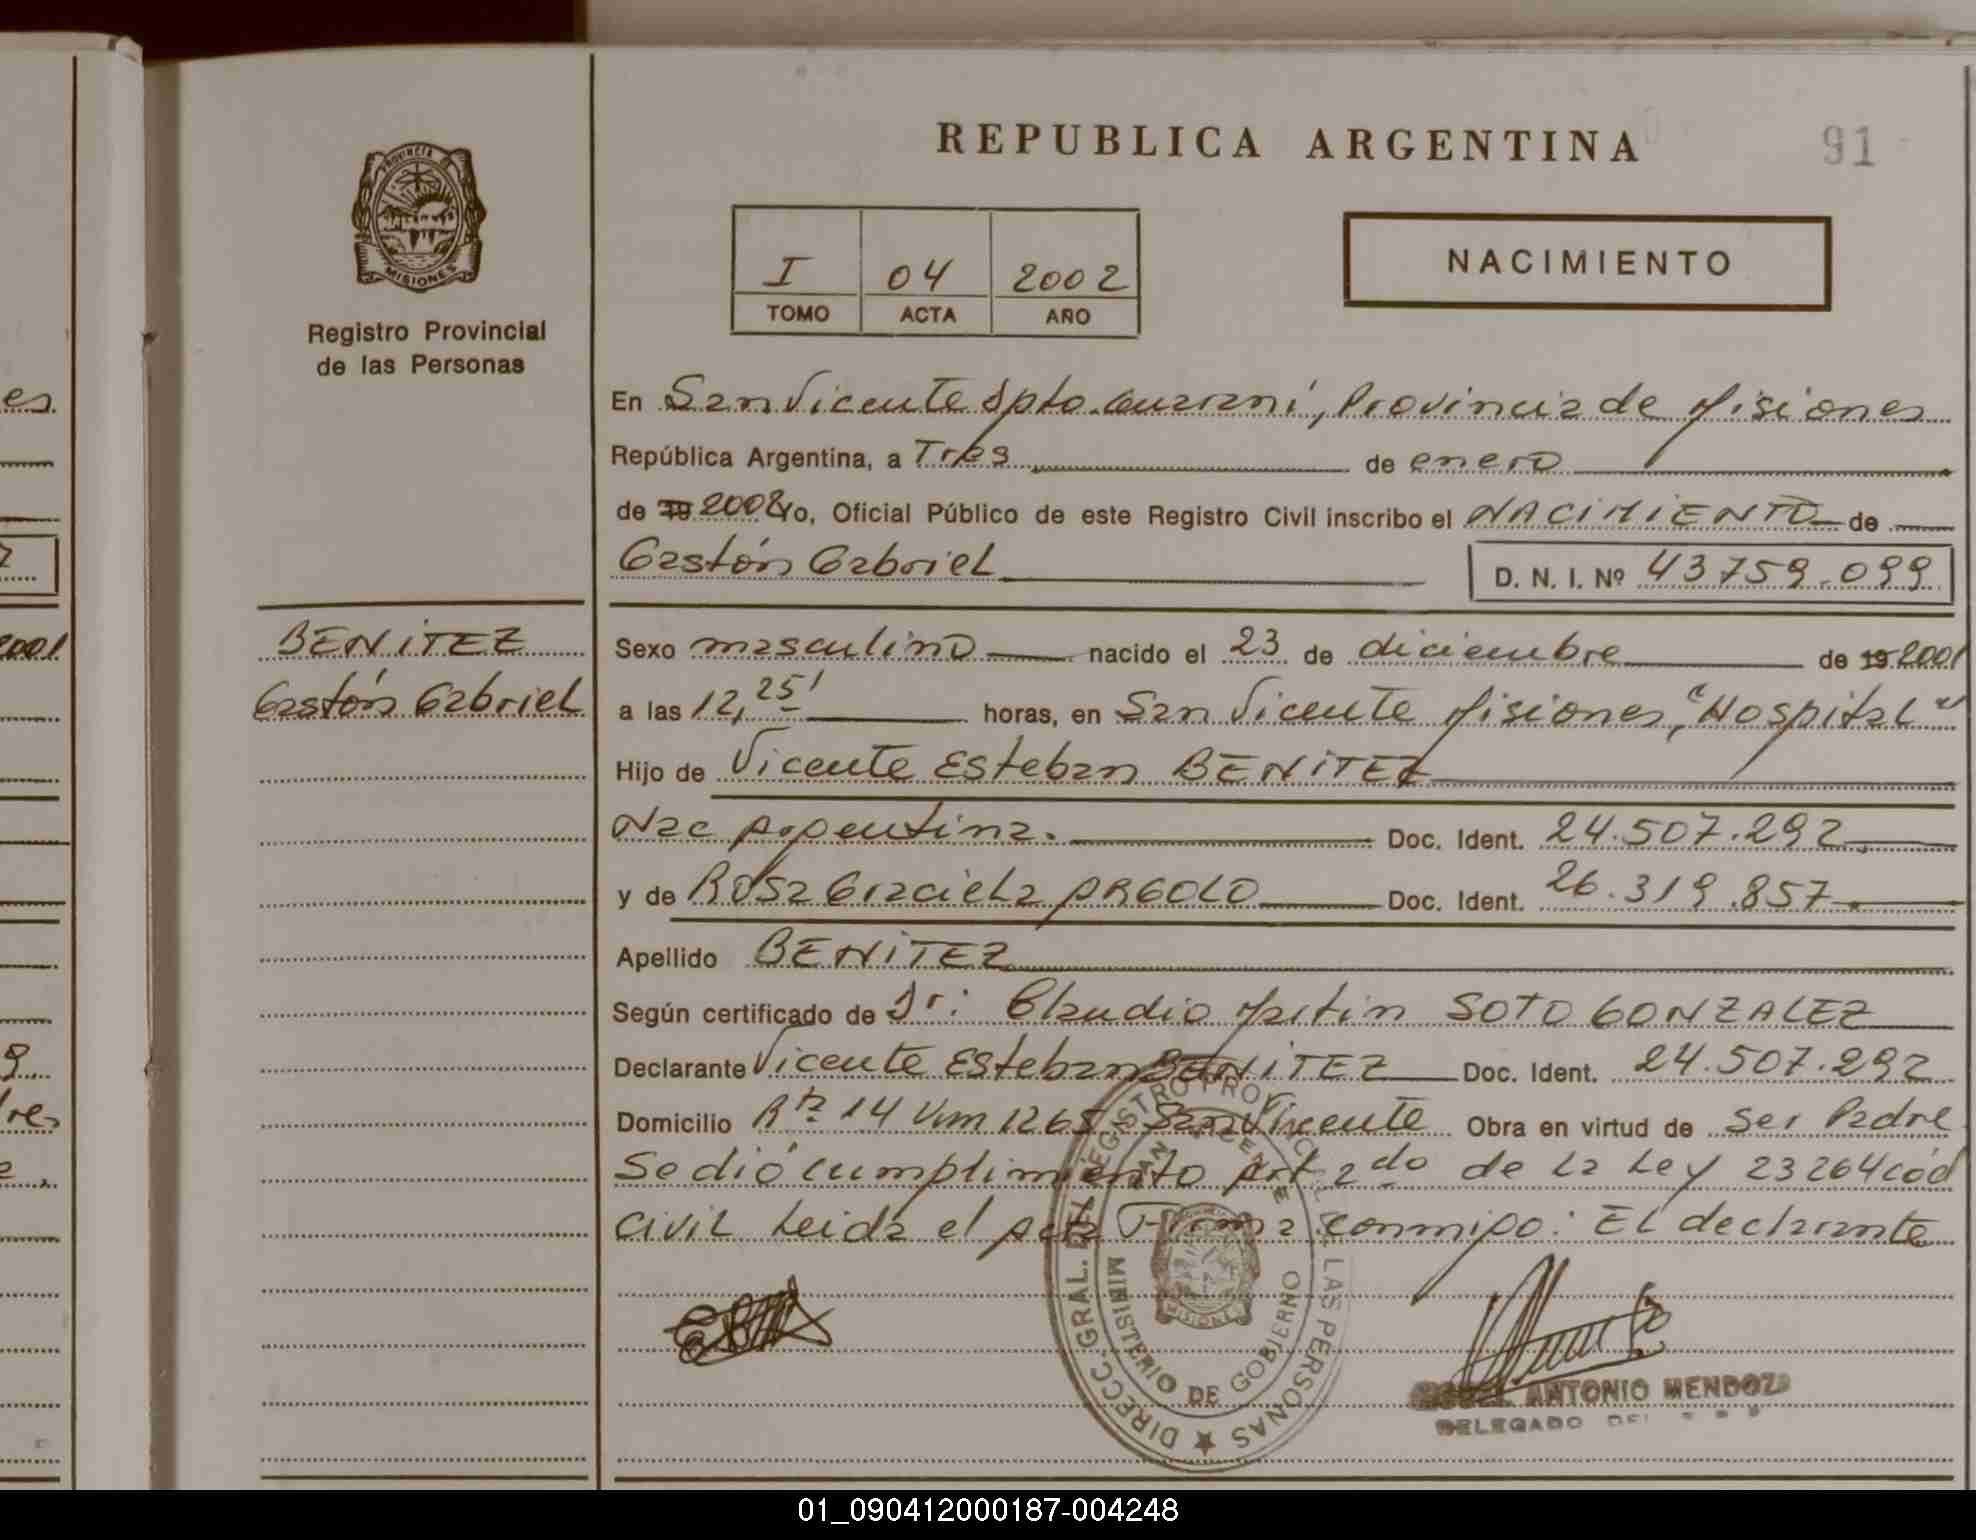 REPUBLICA ARGENTINA
91
PROVINCIA DE
MISIONES
Registro Provincial
de las Personas
I 04 2002
TOMO ACTA AÑO
NACIMIENTO
En San Vicente Dpto. Guaraní, Provincia de Misiones
República Argentina, a Tres de enero
de 19 2002 Yo, Oficial Público de este Registro Civil inscribo el NACIMIENTO de
Gastón Gabriel
D. N. I. Nº 43759.099
BENITEZ
Gastón Gabriel
Sexo masculino nacido el 23 de diciembre de 19 2001
a las 12,25' horas, en San Vicente Misiones, "Hospital"
Hijo de Vicente Esteban BENITEZ
Nac Argentina. Doc. Ident. 24.507.292
y de Rosa Graciela ARGOLO Doc. Ident. 26.319.857
Apellido BENITEZ
Según certificado de Dr: Claudio Martin SOTO GONZALEZ
Declarante Vicente Esteban BENITEZ Doc. Ident. 24.507.292
Domicilio Rta 14 Km 1265 San Vicente Obra en virtud de Ser Padre
Se dió cumplimiento Art 2do de la Ley 23264 Cód
Civil Leida el Acta Firma conmigo: El declarante
DIRECC. GRAL. DEL REGISTRO PROVINCIAL DE LAS PERSONAS
SAN VICENTE
MINISTERIO DE GOBIERNO
MISIONES
ANTONIO MENDOZA
DELEGADO DEL
2001
01_090412000187-004248